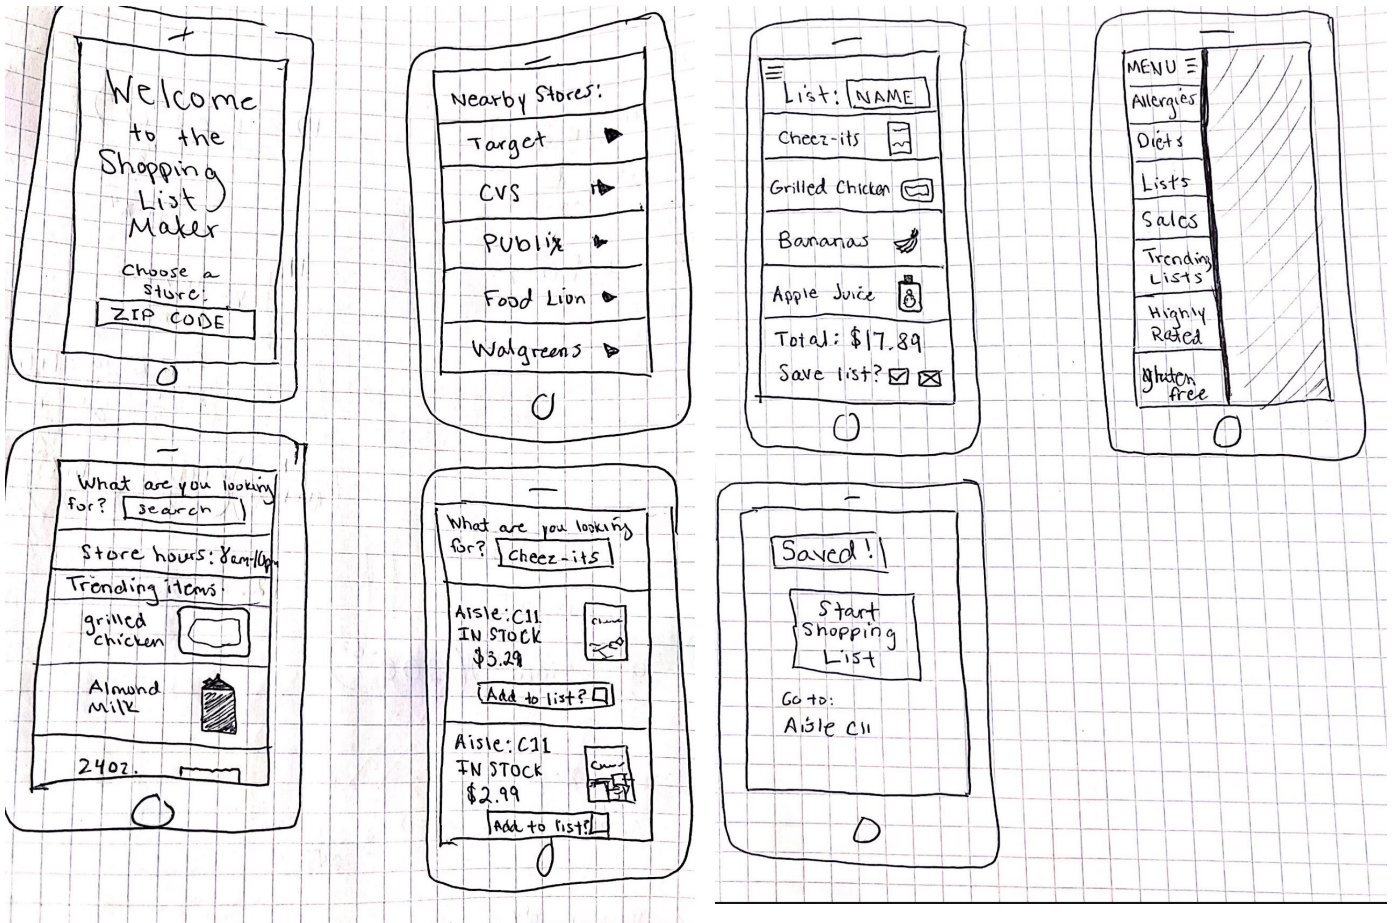 Welcome
to the
Shopping
List
Maker
Choose a
store:
ZIP CODE
Nearby Stores:
Target
CVS
PUBlix
Food Lion
Walgreens
What are you looking
for? search
Store hours: 8am-10pm
Trending items:
grilled
chicken
Almond
Milk
24oz.
What are you looking
for? cheez-its
Aisle: C11
IN STOCK
$3.29
Add to list?
Aisle: C11
IN STOCK
$2.99
Add to list?
List: NAME
Cheez-its
Grilled Chicken
Bananas
Apple Juice
Total: $17.89
Save list?
MENU
Allergies
Diets
Lists
Sales
Trending
Lists
Highly
Rated
gluten
free
Saved!
Start
Shopping
List
Go to:
Aisle C11